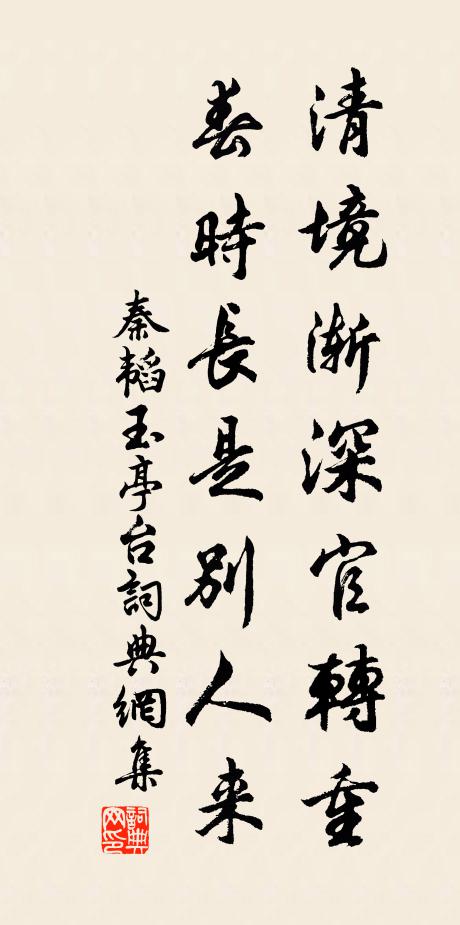 清境漸深官轉重
春時長是別人来
秦韜玉亭台詞典網集
詞典
网印